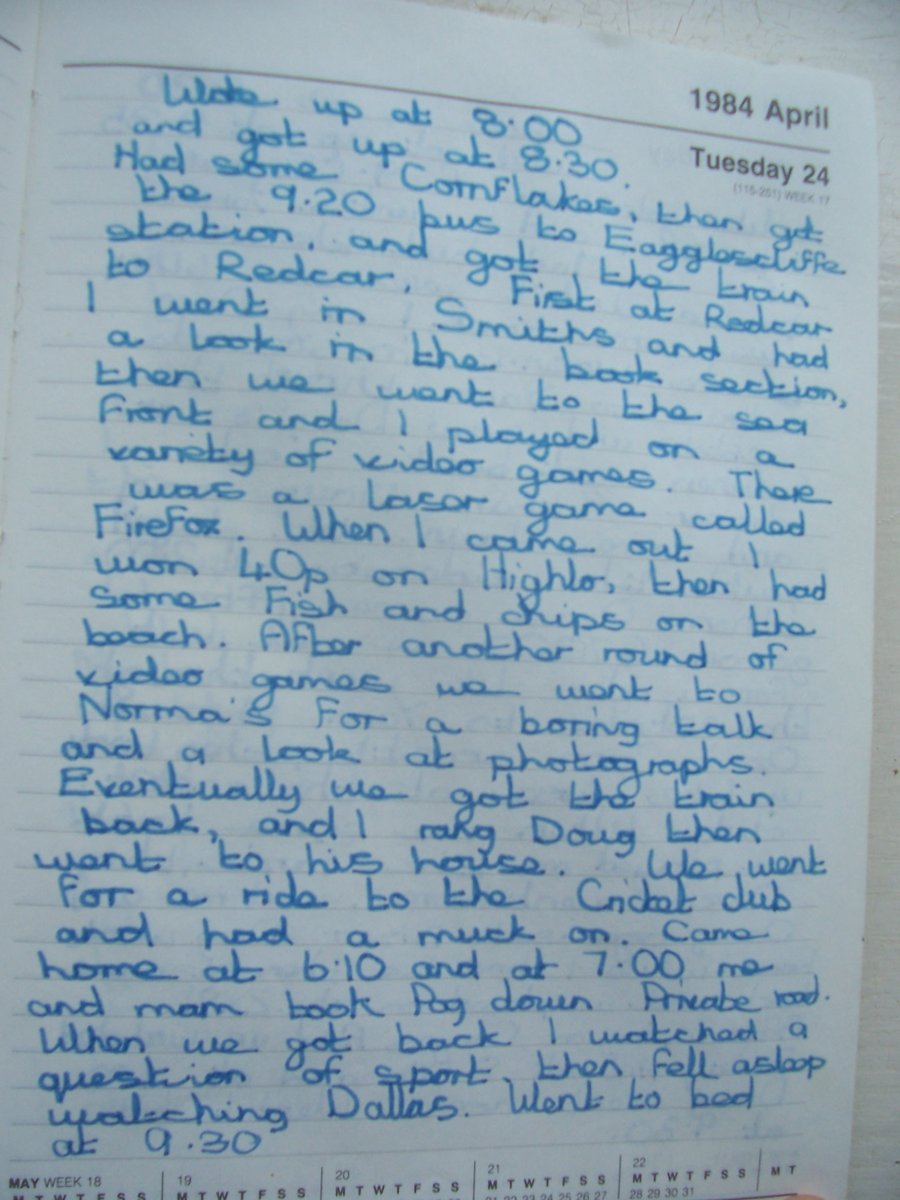 1984 April
Tuesday 24
(115-251) WEEK 17
Woke up at 8.00
and got up at 8.30.
Had some Cornflakes, then got
the 9.20 bus to Eagglescliffe
station, and got the train
to Redcar. First at Redcar
I went in Smiths and had
a look in the book section,
then we went to the sea
front and I played on a
variety of video games. There
was a laser game called
Firefox. When I came out I
won 40p on Highlo, then had
some Fish and chips on the
beach. After another round of
video games we went to
Norma's for a boring talk
and a look at photographs.
Eventually we got the train
back, and I rang Doug then
went to his house. We went
for a ride to the Cricket club
and had a muck on. Came
home at 6.10 and at 7.00 me
and mam took Pog down Private road.
When we got back I watched a
question of sport, then fell asleep
watching Dallas. Went to bed
at 9.30
MAY WEEK 18 19 20 21 22
M T W T F S S M T W T F S S M T W T F S S M T W T F S S M T W T F S S M T
21 22 23 24 25 26 27 28 29 30 31